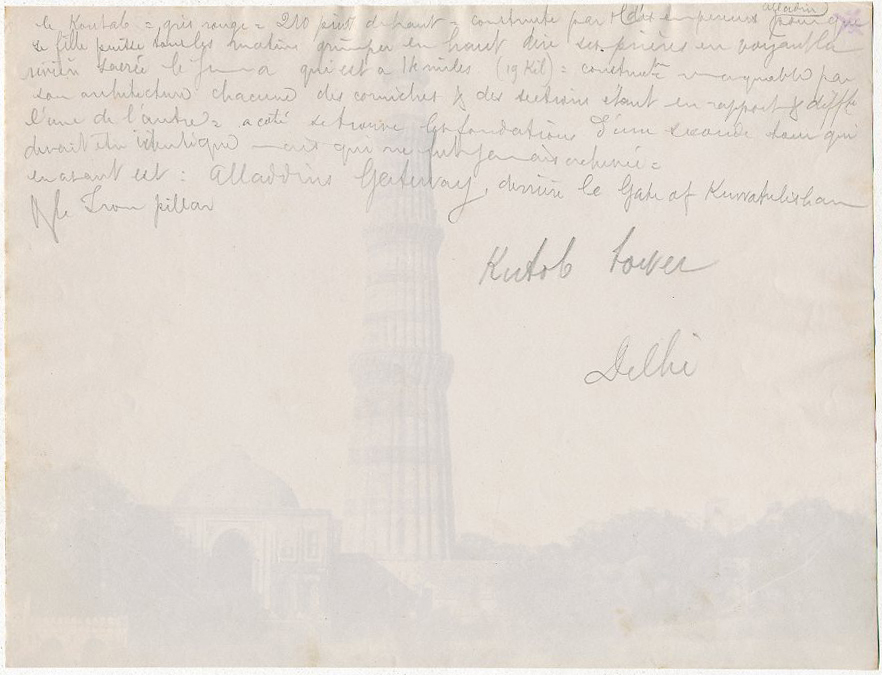 Alladin
le Koutab = grès rouge = 210 pieds de haut = construite par des empereurs pour que
sa fille puisse tous les matins grimper en haut dire ses prières en voyant la
rivière sacrée le Jumna qui est a 12 miles. (19 Kil) = remarquable par
son architecture chacune des corniches & des sections étant en rapport &
l'une de l'autre = a coté se trouve les fondations d'une seconde tour qui
devait être identique mais qui ne fut jamais achevée =
en avant est : Alladdins Gateway, derrière le Gate of
& le Iron pillar
Kutob tower
Delhi